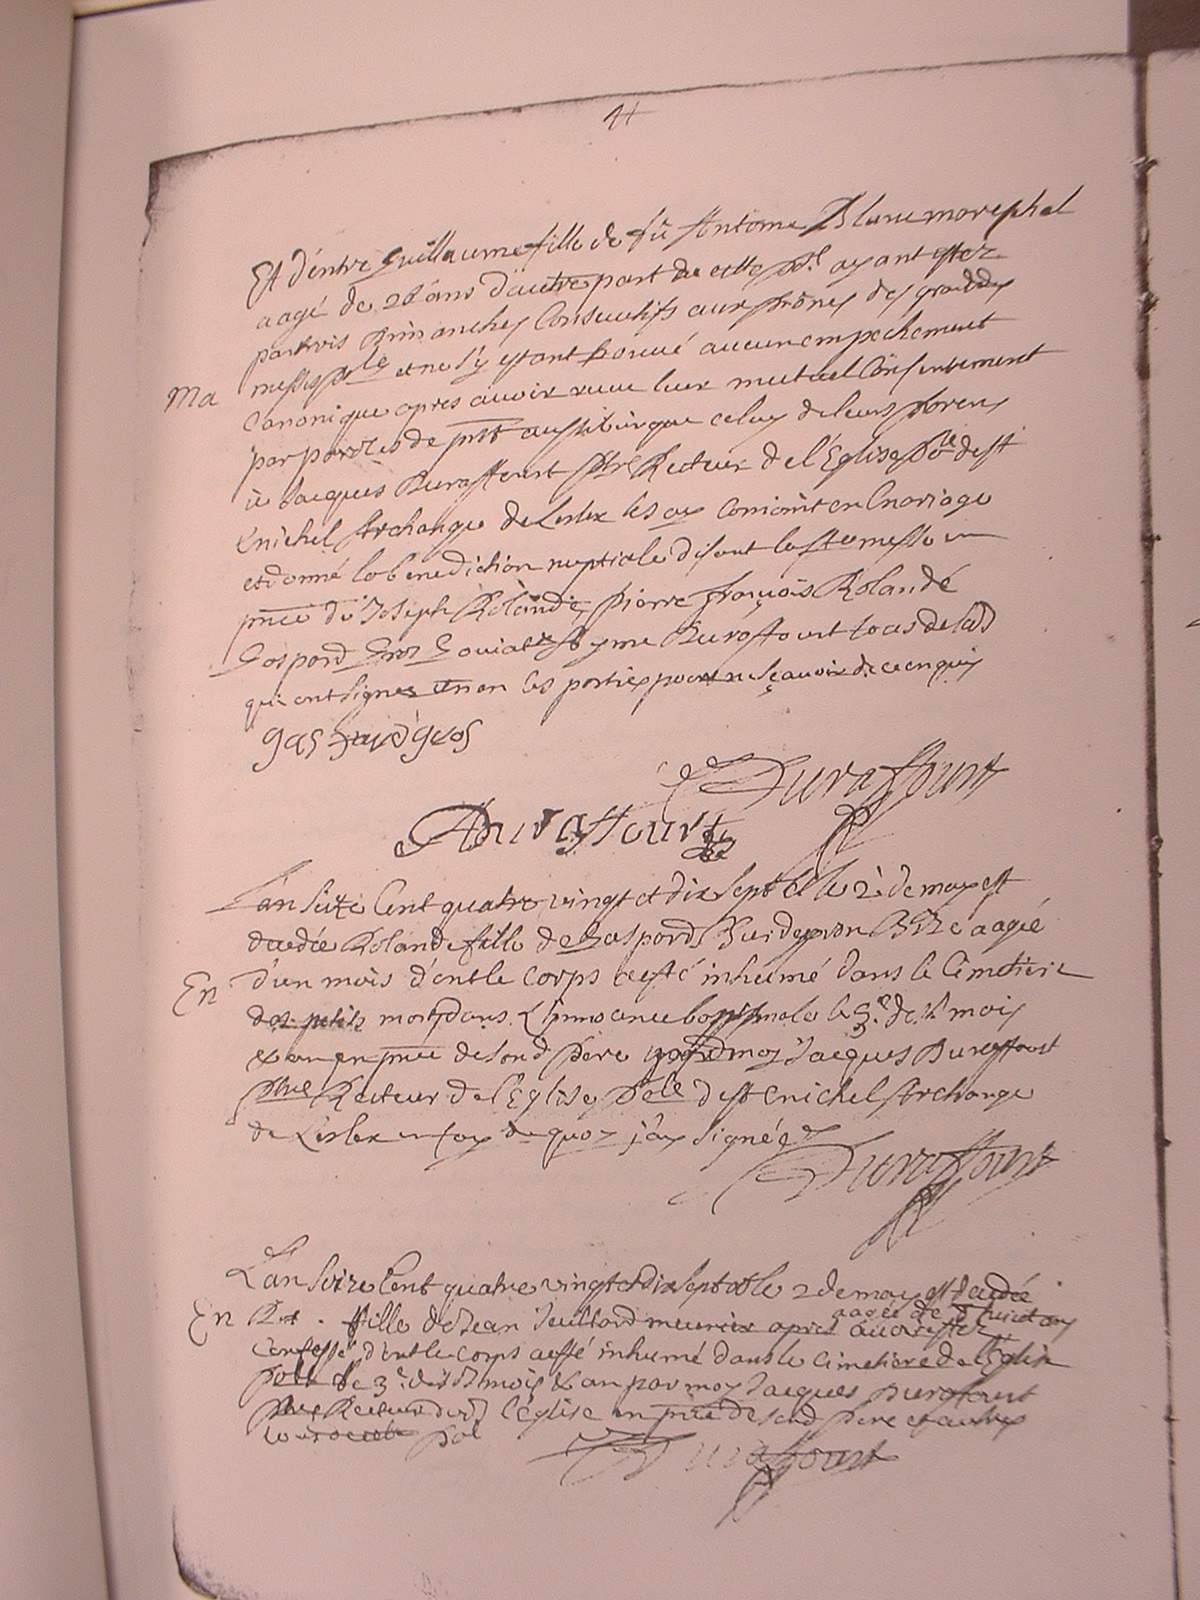 Et d'entre Guillaume fille de fû Antoine Blanc marechal
aagé de 28 ans d'autre part de cette psse ayant estez
par trois dimanches consecutifs aux prônes des grandes
messes et ne s'y estant trouvé aucun empechement
Ma
canonique apres avoir receu leur mutuel consentement
par paroles de pnt aussi bien que celuy de leurs parens
je Jacques Duraffourt ptre Recteur de l'Eglise pelle de st
Michel Archange de Lelex les ay conioint en mariage
et donné la benediction nuptiale disant la ste messe en
pnce de Joseph Rolandé, Pierre françois Rolandé
Gaspard Gros et me Duraffourt tous de lad
qui ont signez et non les parties pour ne sçavoir de ce enquis
gaspard gros
Duraffourt
Duraffourt
L'an seize cent quatre vingt et dix sept et le 2e de may est
decedée Rolande fille de Gaspard aagée
En
d'un mois d'ont le corps a esté inhumé dans le cimetiere
des petits morts dans l'innocence baptismale le 3e desd mois
& an en pnce de sond pere par moy Jacques Duraffourt
ptre Recteur de l'Eglise pelle de st Michel Archange
de Lelex en foy de quoy j'ay signé
Duraffourt
L'an seize cent quatre vingt et dix sept et le 2 de may est decedée
aagée de huict ans
En
fille de Jean Juillard meunier apres avoir estez
confessé d'ont le corps a esté inhumé dans le cimetiere de l'Eglise
pelle le 3e desd mois & an par moy Jacques Duraffourt
ptre Recteur de lad l'église en pnce de sond pere et autres
Duraffourt